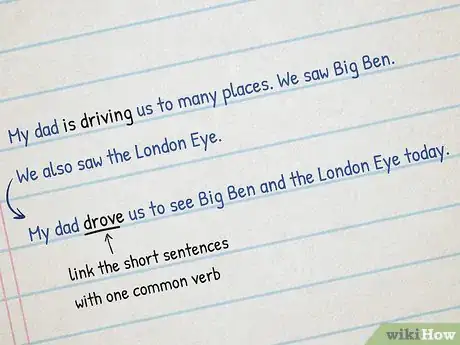 My dad is driving us to many places. We saw Big Ben.
We also saw the London Eye.
My dad drove us to see Big Ben and the London Eye today.
link the short sentences
with one common verb
wikiHow